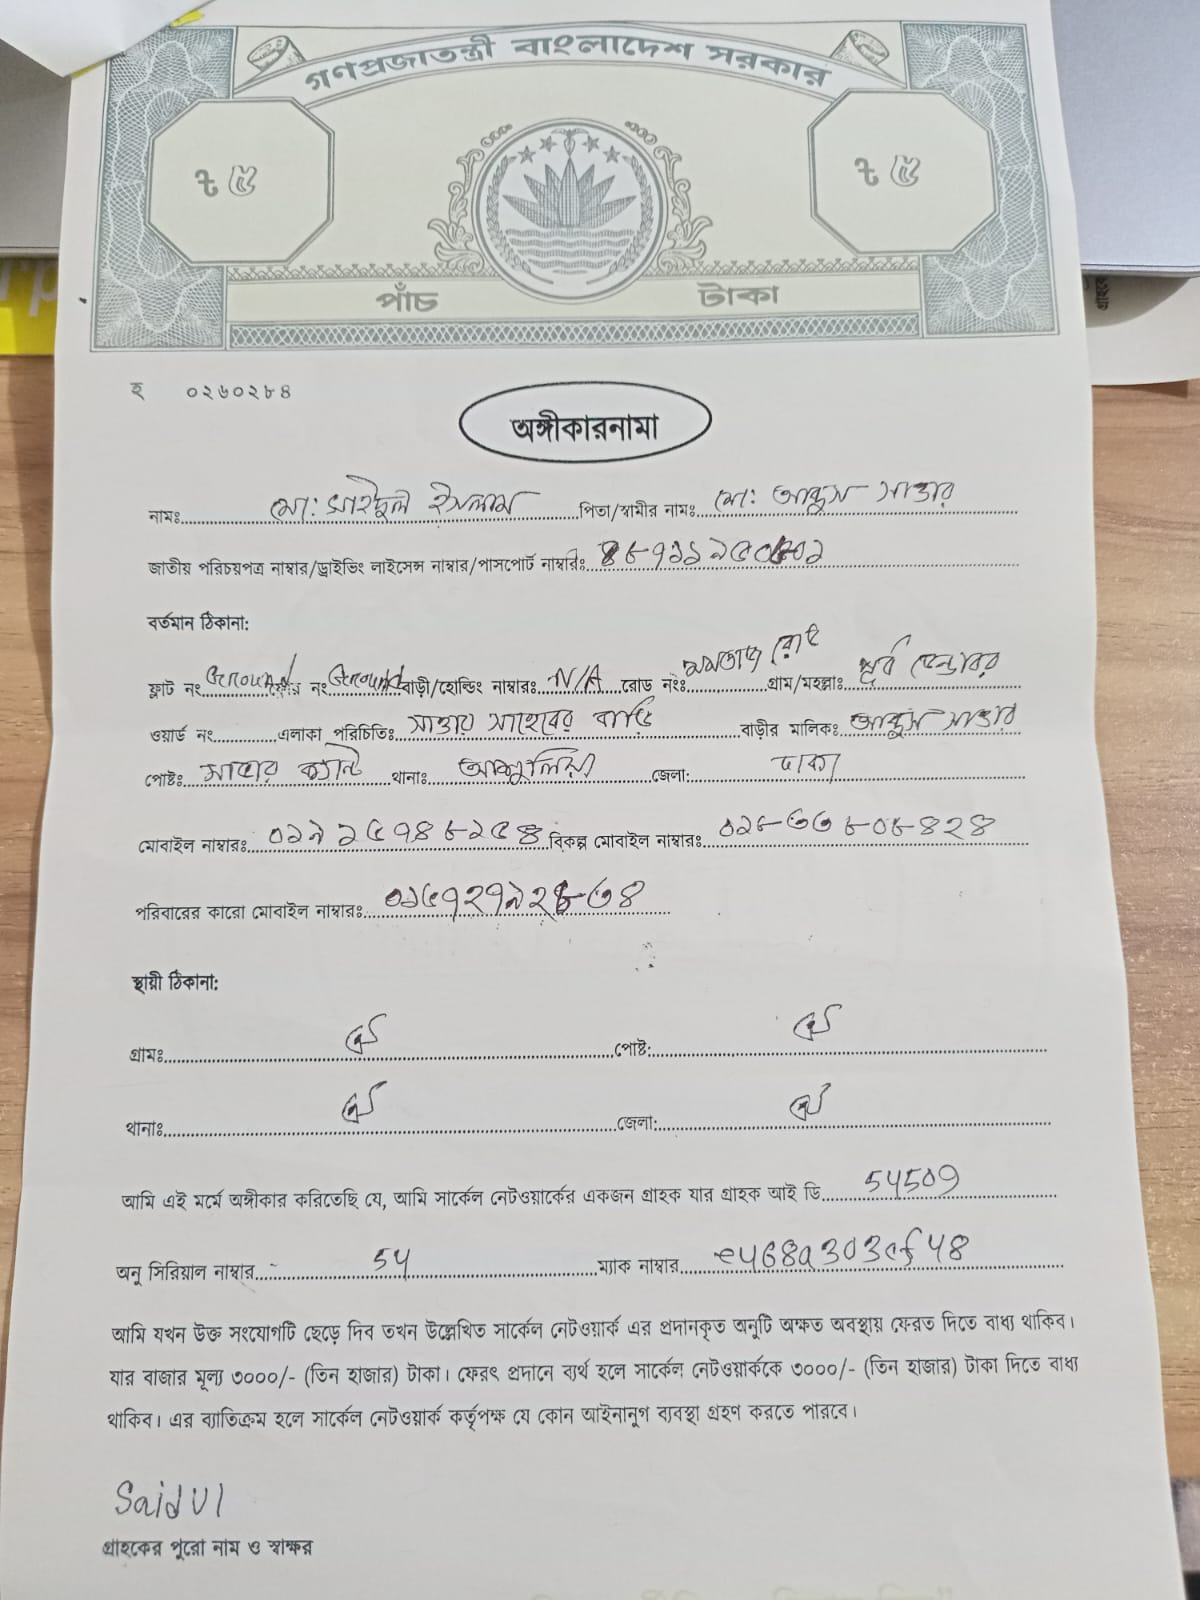 গণপ্রজাতন্ত্রী বাংলাদেশ সরকার
ট ৫ ট ৫
পাঁচ টাকা
হ ০২৬০২৮৪
অঙ্গীকারনামা
নামঃ মো: সাইদুল ইসলাম পিতা/স্বামীর নামঃ মো: আব্দুস সাত্তার
জাতীয় পরিচয়পত্র নাম্বার/ড্রাইভিং লাইসেন্স নাম্বার/পাসপোর্ট নাম্বারঃ
বর্তমান ঠিকানা:
ফ্লাট নং Ground নং Ground বাড়ী/হোল্ডিং নাম্বারঃ N/A রোড নংঃ মমতাজ রোড গ্রাম/মহল্লাঃ পূর্ব ডেন্ডাবর
ওয়ার্ড নং এলাকা পরিচিতিঃ সাত্তার সাহেবের বাড়ি বাড়ীর মালিকঃ আব্দুস সাত্তার
পোষ্টঃ সাভার ক্যান্ট থানাঃ আশুলিয়া জেলা: ঢাকা
মোবাইল নাম্বারঃ ০১৯১৫৭৪৮২৫৪ বিকল্প মোবাইল নাম্বারঃ ০১৮৩৩৮০৮৪২৪
পরিবারের কারো মোবাইল নাম্বারঃ
স্থায়ী ঠিকানা:
গ্রামঃ ঐ পোষ্ট: ঐ
থানাঃ ঐ জেলা: ঐ
আমি এই মর্মে অঙ্গীকার করিতেছি যে, আমি সার্কেল নেটওয়ার্কের একজন গ্রাহক যার গ্রাহক আই ডি 54509
অনু সিরিয়াল নাম্বার 54 ম্যাক নাম্বার e468a303cf48
আমি যখন উক্ত সংযোগটি ছেড়ে দিব তখন উল্লেখিত সার্কেল নেটওয়ার্ক এর প্রদানকৃত অনুটি অক্ষত অবস্থায় ফেরত দিতে বাধ্য থাকিব।
যার বাজার মূল্য ৩০০০/- (তিন হাজার) টাকা। ফেরৎ প্রদানে ব্যর্থ হলে সার্কেল নেটওয়ার্ককে ৩০০০/- (তিন হাজার) টাকা দিতে বাধ্য
থাকিব। এর ব্যাতিক্রম হলে সার্কেল নেটওয়ার্ক কর্তৃপক্ষ যে কোন আইনানুগ ব্যবস্থা গ্রহণ করতে পারবে।
Saidul
গ্রাহকের পুরো নাম ও স্বাক্ষর